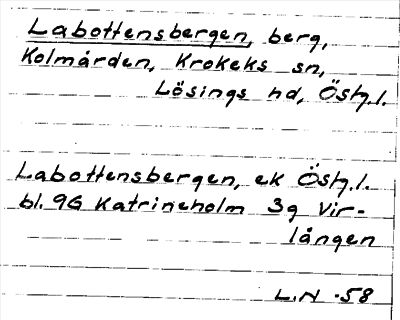 Labottensbergen, berg,
Kolmården, Krokeks sn,
Lösings hd, Östg.l.
Labottensbergen, ek Östg.l.
bl. 9G Katrineholm 3g Vir-
lången
L.N -58